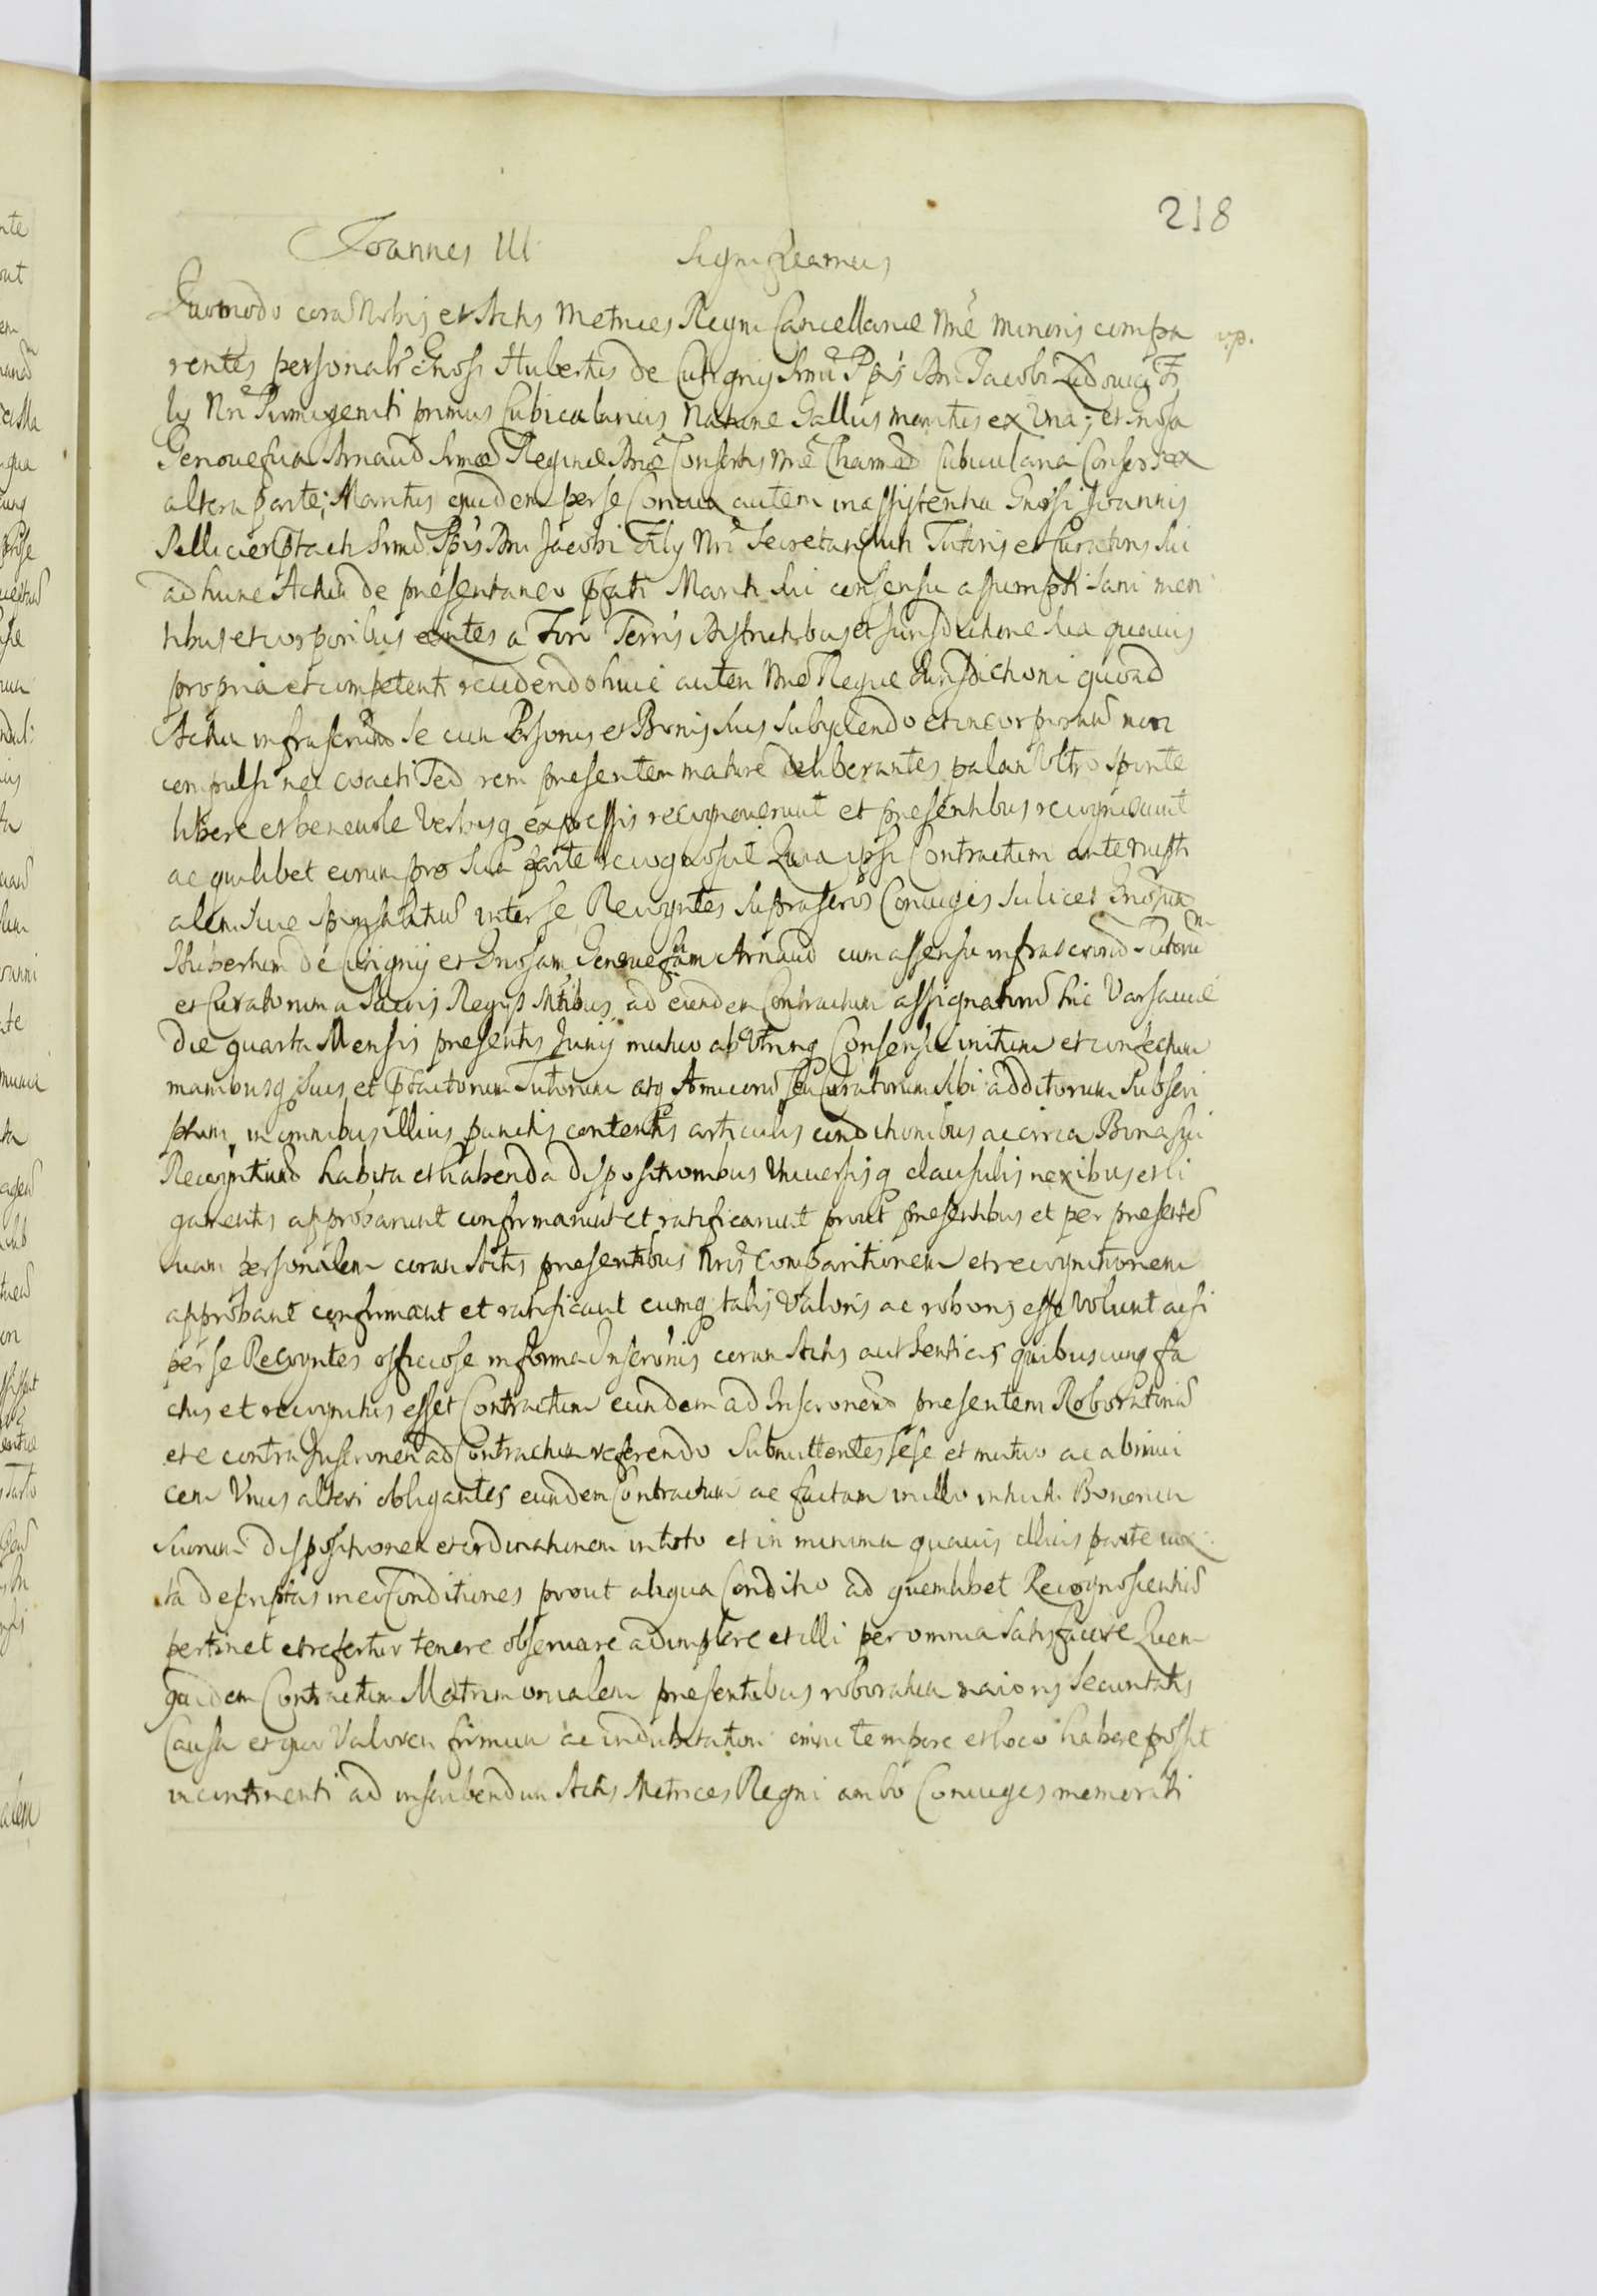 218
Joannes III Significamus
Quomodo corã Nobis et Actis Metrices Regni Cancellariæ Nrẽ minoris compa
rentes personalr Gnosi Hubertus de Cutigny Srmi Ppis Dni Jacobi Ludovici Fi
ly Nri Primogeniti primus Cubicularius Natione Gallus maritus ex Una; et Gnosa
Genouefua Arnaud Srmæ Reginæ Dnæ Consortis Nrẽ Charmæ Cubicularia Consors ex
altera parte; Maritus quidem per se Coniux autem in assistentia Gnosi Joannis
Pellicier Ptacti Srmi Ppis Dni Jacobi Fily Nri Secretarij uti Tutoris et Curatoris sui
ad hunc Actũ de presentaneo pfati Mariti sui consensu assumpti sani men
tibus et corporibus exntes a Foris Terris Districtibus et Jurisdictione sua quavis
propria et competenti recedendo huic autem Nrẽ Regiæ Jurisdictioni quoad
Actũ infrascriptũ se cum Personis et Bonis suis subyciendo et incorporand non
compulsi nec coacti Sed rem presentem mature deliberantes palam Ultro sponte
libere et benevole Verbisq expressis recognoverunt et presentibus recognoscunt
ac quilibet eorum pro sua parte recognoscit Quia ipsi Contractum ante nupti
alem sive sponsalitiũ inter se Recogntes suprascris Coniuges scilicet Gnosum
Hubertum de Cutigny et Gnosam Genouefam Arnaud cum assensu infrascriptorũ Tutorum
et Curatorum a Sacris Regijs Mtibus ad eundem Contractum assignatorũ hic Varsaviæ
die quarta Mensis presentis Juny mutuo ab Utrinq Consensu initum et confectum
manibusq suis et pfactorum Tutorum atq Amicorũ seu Curatorum sibi additorum Subscri
ptum, in omnibus illius punctis contentis articulis conditionibus ac circa Bona sui
Recognitiũ habita et habenda dispositionibus Universisq clausulis nexibus et li
gamentis approbarunt confirmarunt et ratificarunt prout presentibus et per presentẽ
suam personalem coram Actis presentibus Nris Comparitionem et recognitionem
approbant confirmant et ratificant eumq talis Valoris ac roboris esse volunt acsi
per se Recogntes officiose in forma Inscronis coram Actis authenticis quibuscunq fa
ctus et recognitus esset Contractum eundem ad Inscronem presentem Roboratoriã
et e contra Inscronem ad Contractum referendo Submittentes sese et mutuo ac ab invi
cem Unus alteri obligantes eundem Contractum ac factam in illo intuitu Bonorum
suorum dispositionem et ordinationem in toto et in minima quavis illius parte iux
ta descriptas in eo Conditiones prout aliqua Conditio ad quemlibet Recognoscentiũ
pertinet et refertur tenere observare adimplere et illi per omnia satisfacere Quem
quidem Contractum Matrimonialem presentibus roboratum maioris Securitatis
Causa et quo Valorem firmum ac indubitatum omni tempore et loco habere possit
in continenti ad inscribendum Actis Metrices Regni ambo Coniuges memorati